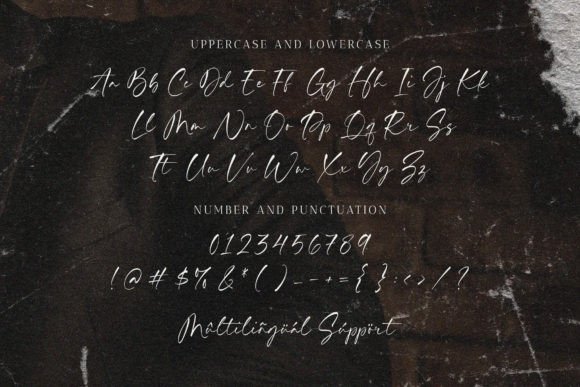 UPPERCASE AND LOWERCASE
Aa Bb Cc Dd Ee Ff Gg Hh Ii Jj Kk
Ll Mm Nn Oo Pp Qq Rr Ss
Tt Uu Vv Ww Xx Yy Zz
NUMBER AND PUNCTUATION
0123456789
!@#$%&*()_-+={}:<>/?
Mûltiliñgüál Súppört